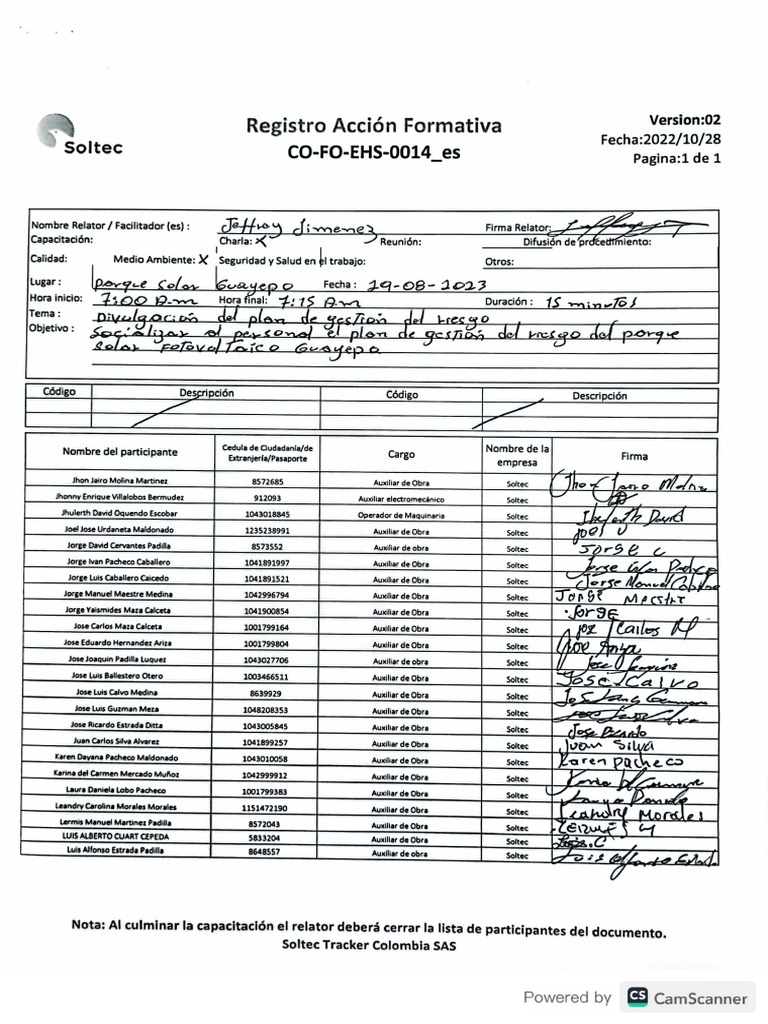 Soltec
Registro Acción Formativa
CO-FO-EHS-0014_es
Version:02
Fecha:2022/10/28
Pagina:1 de 1
Nombre Relator / Facilitador (es) : Jeffroy Jimenez Firma Relator:
Capacitación: Charla: X Reunión: Difusión de procedimiento:
Calidad: Medio Ambiente: X Seguridad y Salud en el trabajo: Otros:
Lugar : Parque Solar Guayepo Fecha : 29-08-2023
Hora inicio: 7:00 A.m Hora final: 7:15 Am Duración : 15 minutos
Tema : Divulgación del plan de gestión del riesgo
Objetivo : Socializar al personal el plan de gestión del riesgo del parque
solar fotovoltaico Guayepo
Código Descripción Código Descripción
Nombre del participante Cedula de Ciudadanía/de Extranjería/Pasaporte Cargo Nombre de la empresa Firma
Jhon Jairo Molina Martinez 8572685 Auxiliar de Obra Soltec Jhon Jairo Molina
Jhonny Enrique Villalobos Bermudez 912093 Auxiliar electromecánico Soltec
Jhulerth David Oquendo Escobar 1043018845 Operador de Maquinaria Soltec Jhulerth David
Joel Jose Urdaneta Maldonado 1235238991 Auxiliar de Obra Soltec joel U
Jorge David Cervantes Padilla 8573552 Auxiliar de Obra Soltec Jorge C
Jorge Ivan Pacheco Caballero 1041891997 Auxiliar de Obra Soltec Jorge Ivan Pacheco
Jorge Luis Caballero Caicedo 1041891521 Auxiliar de Obra Soltec
Jorge Manuel Maestre Medina 1042996794 Auxiliar de Obra Soltec Jorge Maestre
Jorge Yaismides Maza Calceta 1041900854 Auxiliar de Obra Soltec Jorge
Jose Carlos Maza Calceta 1001799164 Auxiliar de Obra Soltec joz Carlos M
Jose Eduardo Hernandez Ariza 1001799804 Auxiliar de Obra Soltec
Jose Joaquin Padilla Luquez 1043027706 Auxiliar de obra Soltec Jose
Jose Luis Ballestero Otero 1003466511 Auxiliar de obra Soltec JOSE CALVO
Jose Luis Calvo Medina 8639929 Auxiliar de obra Soltec
Jose Luis Guzman Meza 1048208353 Auxiliar de obra Soltec
Jose Ricardo Estrada Ditta 1043005845 Auxiliar de obra Soltec Jose Ricardo
Juan Carlos Silva Alvarez 1041899257 Auxiliar de obra Soltec Juan Silva
Karen Dayana Pacheco Maldonado 1043010058 Auxiliar de obra Soltec Karen pacheco
Karina del Carmen Mercado Muñoz 1042999912 Auxiliar de obra Soltec
Laura Daniela Lobo Pacheco 1001799383 Auxiliar de obra Soltec
Leandry Carolina Morales Morales 1151472190 Auxiliar de obra Soltec Leandry Morales
Lermis Manuel Martinez Padilla 8572043 Auxiliar de obra Soltec
LUIS ALBERTO CUART CEPEDA 5833204 Auxiliar de obra Soltec Luis.C
Luis Alfonso Estrada Padilla 8648557 Auxiliar de obra Soltec Luis Alfonso Estrada
Nota: Al culminar la capacitación el relator deberá cerrar la lista de participantes del documento.
Soltec Tracker Colombia SAS
Powered by CS CamScanner